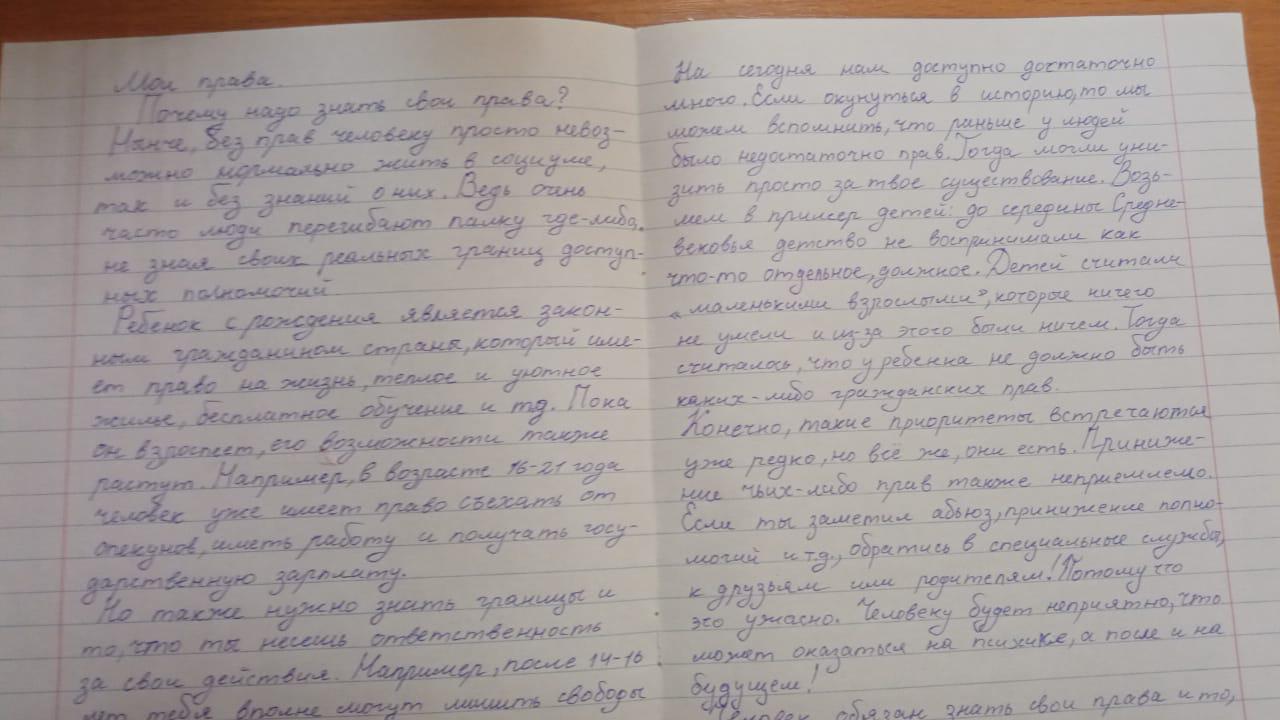 Мои права.
Почему надо знать свои права?
Нынче, без прав человеку просто невоз-
можно нормально жить в социуме,
так и без знаний о них. Ведь очень
часто люди перегибают палку где-либо,
не зная своих реальных границ доступ-
ных полномочий
Ребенок с рождения является закон-
ным гражданином страны, который име-
ет право на жизнь, теплое и уютное
жилье, бесплатное обучение и т.д. Пока
он взрослеет, его возможности также
растут. Например, в возрасте 16-21 года
человек уже имеет право съехать от
опекунов, иметь работу и получать госу-
дарственную зарплату.
Но также нужно знать границы и
то, что ты несешь ответственность
за свои действия. Например, после 14-16
лет тебя вполне могут лишить свободы
На сегодня нам доступно достаточно
много. Если окунуться в историю, то мы
можем вспомнить, что раньше у людей
было недостаточно прав. Тогда могли уни-
зить просто за твое существование. Возь-
мем в пример детей: до середины Средне-
вековья детство не воспринимали как
что-то отдельное, должное. Детей считали
"маленькими взрослыми", которые ничего
не умели и из-за этого были ничем. Тогда
считалось, что у ребенка не должно быть
каких-либо гражданских прав.
Конечно, такие приоритеты встречаются
уже редко, но всё же, они есть. Приниже-
ние чьих-либо прав также неприемлемо.
Если ты заметил абьюз, принижение полно-
мочий и т.д., обратись в специальные служба,
к друзьям или родителям! Потому что
это ужасно. Человеку будет неприятно, что
может оказаться на психике, а после и на
будущем!
Человек обязан знать свои права и то,